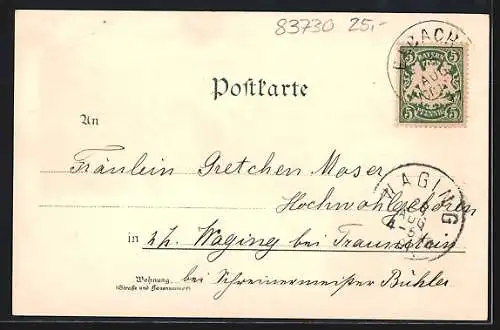 83730 25,-
BAYERN
5 5
PFENNIG
AUG
Postkarte
An
Fräulein Gretchen Moser
Hochwohlgeboren
WAGING.
AUG
in zh. Waging bei Traunstein
Wohnung bei Schreinermeister Bühler
(Straße und Hausnummer)